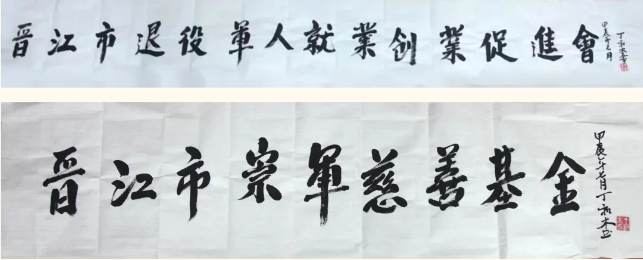 晋江市退役軍人就業創業促進會
甲辰年七月
晋江市崇軍慈善基金
甲辰年七月丁和木書